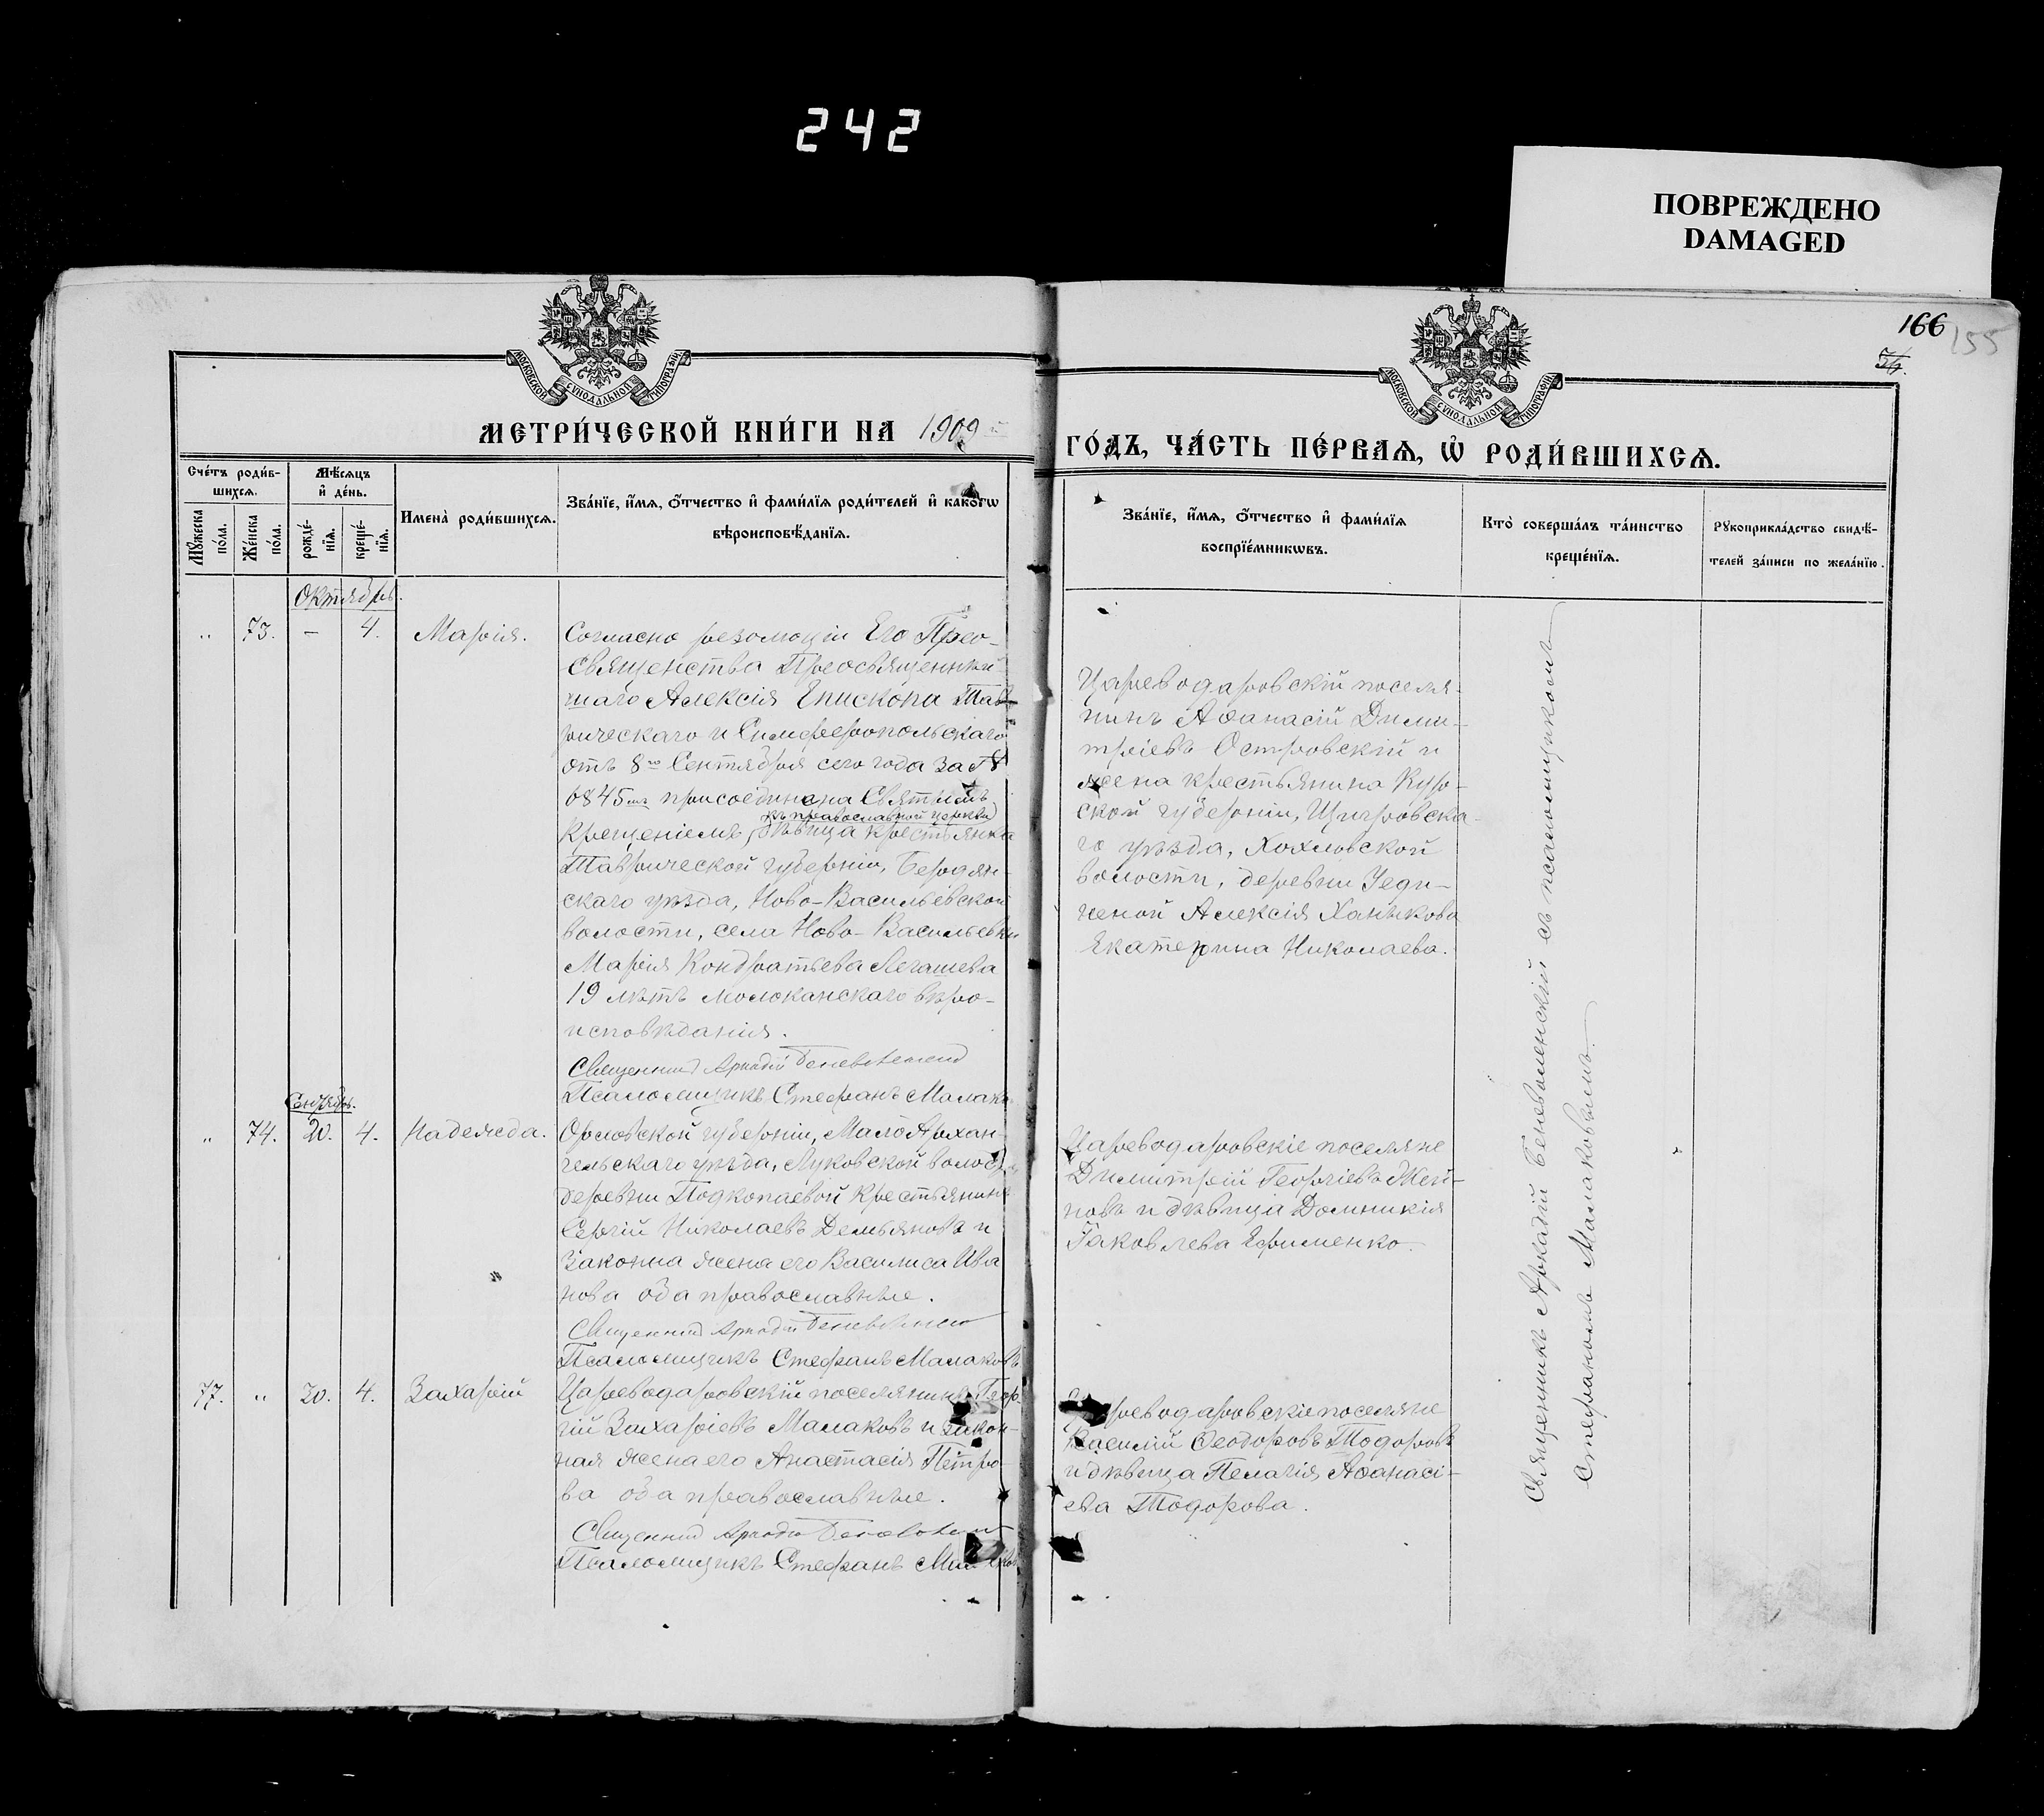 242
ПОВРЕЖДЕНО
DAMAGED
166
155
МОСКОВСКОЙ СѴНОДАЛЬНОЙ ТИПОГРАФІИ
МОСКОВСКОЙ СѴНОДАЛЬНОЙ ТИПОГРАФІИ
МЕТРИ́ЧЕСКОЙ КНИ́ГИ НА 1909
ГО́ДЪ, ЧА́СТЬ ПЕ́РВАѦ, Ѡ҆ РОДИ́ВШИХСѦ.
Сче́тъ роди́в-
шихсѧ.
Мѣ́сѧцъ
и҆ де́нь.
Мꙋ́жеска
по́ла.
Же́нска
по́ла.
рожде́-
нїѧ.
креще́-
нїѧ.
Имена̀ роди́вшихсѧ.
Зва́нїе, и҆́мѧ, ѻ҆́тчество и҆ фами́лїѧ роди́телей и҆ како́гѡ
вѣроисповѣ́данїѧ.
Зва́нїе, и҆́мѧ, ѻ҆́тчество и҆ фами́лїѧ
воспрїе́мникѡвъ.
Кто̀ соверша́лъ та́инство
креще́нїѧ.
Рꙋкоприкла́дство свидѣ́-
телей за́писи по жела́нїю.
Октябрь.
" 73. – 4. Марія.
Согласно резолюціи Его Прео-
священства Преосвященнѣй
шаго Алексія Епископа Тав-
рическаго и Симферопольскаго
отъ 8го Сентября сего года за №
6845мъ присоединена Святымъ
къ православной церкви
Крещеніемъ, дѣвица крестьянка
Таврической губерніи, Бердян-
скаго уѣзда, Ново-Васильевской
волости, села Ново-Васильевки
Марія Кондратьева Легашева
19 лѣтъ молоканскаго вѣро-
исповѣданія.
Священникъ Аркадій Беневоленскій
Псаломщикъ Стефанъ Малако
Цареводаровскій поселя-
нинъ Аѳанасій Дими-
тріевъ Островскій и
жена крестьянина Кур-
ской губерніи, Щигровска-
го уѣзда, Хохловской
волости, деревни Уеди-
неной Алексія Ханыкова
Екатерина Николаева.
Сентябрь.
" 74. 20. 4. Надежда.
Орловской губерніи, Мало Архан-
гельскаго уѣзда, Луковской волос
деревни Подкопаевой крестьянинъ
Сергій Николаевъ Демьяновъ и
законна жена его Василиса Ива
нова оба православные.
Священникъ Аркадій Беневоленскій
Псаломщикъ Стефанъ Малаковъ
Цареводаровскіе поселяне
Димитрій Георгіевъ Жей-
новъ и дѣвица Домникія
Іаковлева Ефименко.
77. " 20. 4. Захарій
Цареводаровскій поселянинъ Геор
гій Захаріевъ Малаковъ и закон-
ная жена его Анастасія Петро-
ва оба православные.
Священникъ Аркадій Беневоленскій
Псаломщикъ Стефанъ Малаковъ
Цареводаровскіе поселяне
Василій Ѳеодоровъ Тодоровъ
и дѣвица Пелагія Аѳанасі-
ева Тодорова.
Священникъ Аркадій Беневоленскій съ псаломщикомъ
Стефаномъ Малаковымъ.